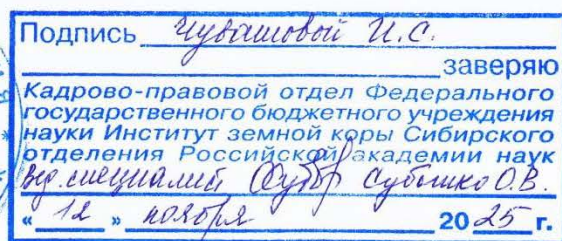 Подпись Чувашовой И.С.
заверяю
Кадрово-правовой отдел Федерального
государственного бюджетного учреждения
науки Институт земной коры Сибирского
отделения Российской академии наук
Вед. специалист Субочко О.В.
"12" ноября 2025 г.